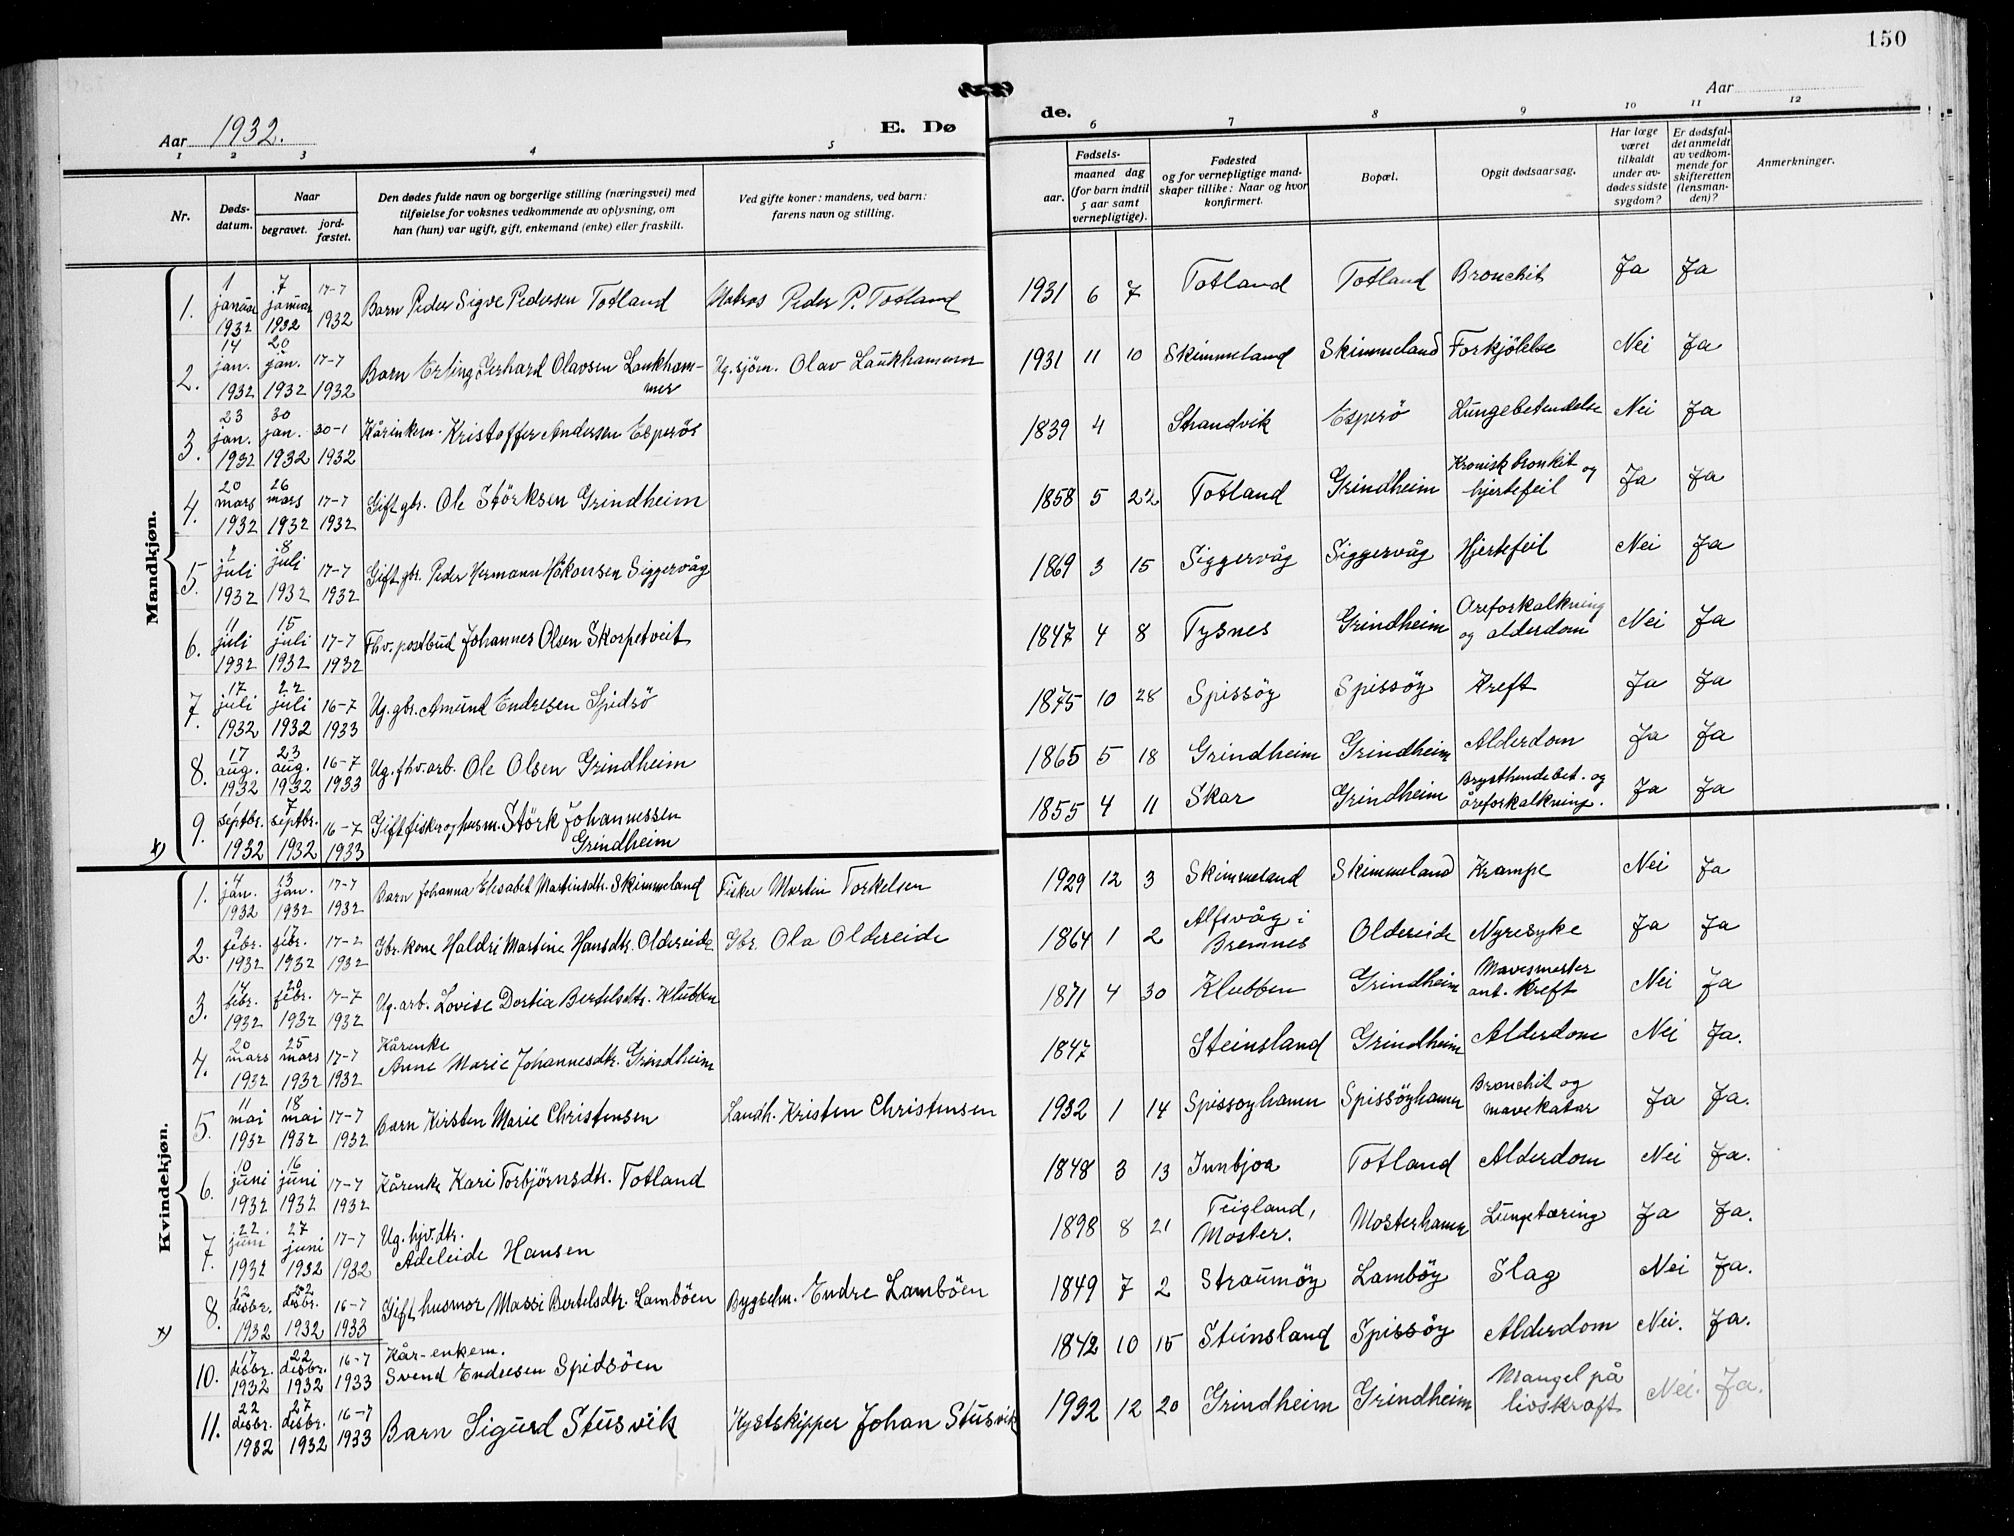 150
Aar 1932.
E. Dø
de.
Aar
1 2 3 4 5 6 7 8 9 10 11 12
Nr.
Døds-
datum.
Naar
begravet.
jord-
fæstet.
Den dødes fulde navn og borgerlige stilling (næringsvei) med
tilføielse for voksnes vedkommende av oplysning, om
han (hun) var ugift, gift, enkemand (enke) eller fraskilt.
Ved gifte koner: mandens, ved barn:
farens navn og stilling.
Fødsels-
aar.
maaned dag
(for barn indtil
5 aar samt
vernepligtige).
Fødested
og for vernepligtige mand-
skaper tillike: Naar og hvor
konfirmert.
Bopæl.
Opgit dødsaarsag.
Har læge
været
tilkaldt
under av-
dødes sidste
sygdom?
Er dødsfal-
det anmeldt
av vedkom-
mende for
skifteretten
(lensman-
den)?
Anmerkninger.
Mandkjøn.
1. 1 januar 1932 7 januar 1932 17-7 1932 Barn Peder Sigve Pedersen Totland Matros Peder P. Totland 1931 6 7 Totland Totland Bronchit Ja Ja
2. 14 jan. 1932 20 jan. 1932 17-7 1932 Barn Erling Gerhard Olavsen Laukham-
mer Ug. sjøm. Olav Laukhammer 1931 11 10 Skimmeland Skimmeland Forkjølelse Nei Ja
3. 23 jan. 1932 30 jan. 1932 30-1 1932 Kårenkem. Kristoffer Andersen Esperös 1839 4 Strandvik Esperö Lungebetendelse Nei Ja
4. 20 mars 1932 26 mars 1932 17-7 1932 Gift gbr. Ole Störksen Grindheim 1858 5 22 Totland Grindheim Kronisk bronkit og
hjertefeil Ja Ja
5. 2 juli 1932 8 juli 1932 17-7 1932 Gift gbr. Peder Hermann Håkonsen Siggervåg 1869 3 15 Siggervåg Siggervåg Hjertefeil Nei Ja
6. 11 juli 1932 15 juli 1932 17-7 1932 Fhv. postbud Johannes Olsen Skorpetveit 1847 4 8 Tysnes Grindheim Åreforkalkning
og alderdom Nei Ja
7. 17 juli 1932 22 juli 1932 16-7 1933 Ug. gbr. Amund Endresen Spidsö 1875 10 28 Spissöy Spissöy Kreft Ja Ja
8. 17 aug. 1932 23 aug. 1932 16-7 1933 Ug. fhv. arb. Ole Olsen Grindheim 1865 5 18 Grindheim Grindheim Alderdom Ja Ja
9. 1 septbr. 1932 7 septbr. 1932 16-7 1933 Gift fisker og husm. Störk Johannessen
Grindheim 1855 4 11 Skar Grindheim Brysthindebet. og
åreforkalkning. Ja Ja
x)
Kvindekjøn.
1. 4 jan. 1932 13 jan. 1932 17-7 1932 Barn Johanna Elisabet Martinsdtr. Skimmeland Fisker Martin Torkelsen 1929 12 3 Skimmeland Skimmeland Krampe Nei Ja
2. 9 febr. 1932 17 febr. 1932 17-2 1932 Gbr. kone Haldri Martine Hansdtr. Oldereide Gbr. Ola Oldereide 1864 1 2 Alfsvåg i
Bremnes Oldereide Nyresyke Ja Ja
3. 14 febr. 1932 20 febr. 1932 17-7 1932 Ug. arb. Lovise Dortia Bertelsdtr. Klubben 1871 4 30 Klubben Grindheim Mavesmerter
ant. kreft Nei Ja
4. 20 mars 1932 25 mars 1932 17-7 1932 Kårenke
Anne Marie Johannesdtr. Grindheim 1847 Steinsland Grindheim Alderdom Nei Ja.
5. 11 mai 1932 18 mai 1932 17-7 1932 Barn Kirsten Marie Christensen Landh. Kristen Christensen 1932 1 14 Spissøyhamn Spissöyhamn Bronchit og
mavekatar Ja Ja.
6. 10 juni 1932 16 juni 1932 17-7 1932 Kårenke Kari Torbjörnsdtr. Totland 1848 3 13 Innbjoa Totland Alderdom Nei Ja.
7. 22. juni 1932 27 juni 1932 17-7 1932 Ug. hjv. dtr.
Adeleide Hansen 1898 8 21 Teigland,
Moster. Mosterhamn Lungetæring Ja Ja.
8. 12 desbr. 1932 22 desbr. 1932 16-7 1933 Gift husmor Massi Bertelsdtr. Lamböen Bygselm. Endre Lamböen 1849 7 2 Straumöy Lamböy Slag Nei Ja.
x)
10. 17 desbr. 1932 22 desbr. 1932 16-7 1933 Kår-enkem.
Svend Endresen Spidsöen 1842 10 15 Steinsland Spissöy Alderdom Nei. Ja.
11. 22 desbr. 1932 27 desbr. 1932 16-7 1933 Barn Sigurd Stusvik Kystskipper Johan Stusvik 1932 12 20 Grindheim Grindheim Mangel på
livskraft Nei. Ja.